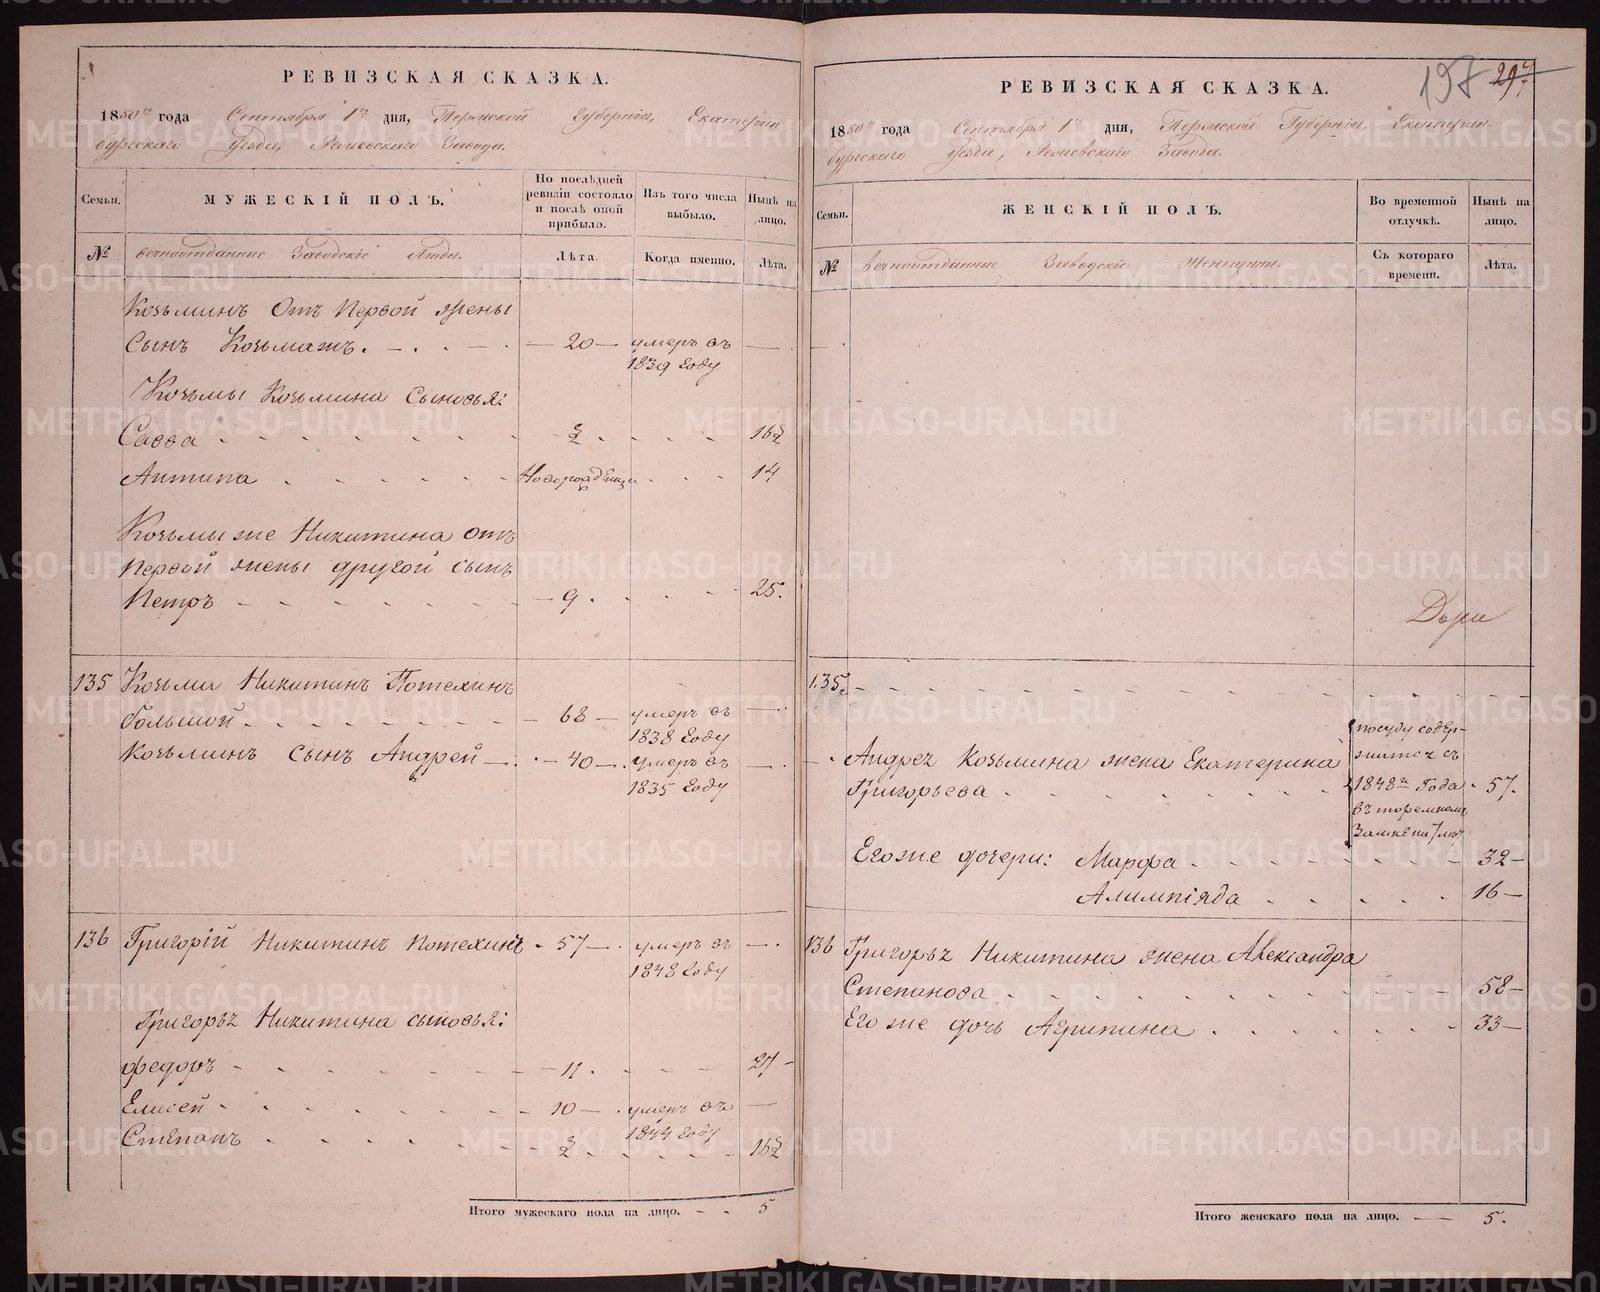 РЕВИЗСКАЯ СКАЗКА.
1850го года Сентября 1го дня, Пермской Губернии, Екатерин
бургскаго Уезда, Завода.
Семьи.
МУЖЕСКІЙ ПОЛЪ.
По послѣдней ревизіи состояло и послѣ оной прибыло.
Изъ того числа выбыло.
Нынѣ на лицо.
№
Заводскіе Люди.
Лѣта.
Когда именно.
Лѣта.
Козьминъ Отъ Первой жены
Сынъ Козьма жъ. 20 умеръ въ
1839 Году
Козьмы Козьмина Сыновья:
Савва 2/3 16 2/3
Антипа 14
Козьмы же Никитина отъ
Первой жены другой сынъ
Петръ 9. 25.
135 Козьма Никитинъ Потехинъ
большой 68 умеръ въ
1838 Году
Козьминъ сынъ Андрей 40 умеръ въ
1835 Году
136 Григорій Никитинъ Потехинъ 57 умеръ въ
1848 Году
Григорья Никитина сыновья:
Федоръ 11. 27
Елисей 10 умеръ въ
1844 Году
Степанъ 2/3 16 2/3
Итого мужескаго пола на лицо. 5
197
РЕВИЗСКАЯ СКАЗКА.
1850го года Сентября 1го дня, Пермской Губерніи, Екатерин-
бургскаго Уезда, Завода.
Семьи.
ЖЕНСКІЙ ПОЛЪ.
Во временной отлучкѣ.
Нынѣ на лицо.
№
Заводскіе Женщины.
Съ котораго времени.
Лѣта.
135.
Андрея Козьмина жена Екатерина
Григорьева 57.
посуду содер-
жится съ
1848го Года
въ тюремномъ
Его же дочери: Марфа 32
Алимпіяда 16
136 Григорья Никитина жена Александра
Степанова 58
Его же дочь Агрипина 33
Итого женскаго пола на лицо. 5.
METRIKI.GASO-URAL.RU